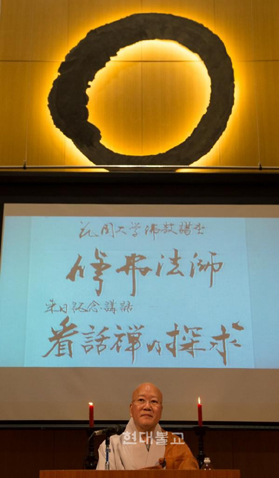 花園大学佛教講座
修弗法師
来日記念講話
看話禅の探求
現대불교